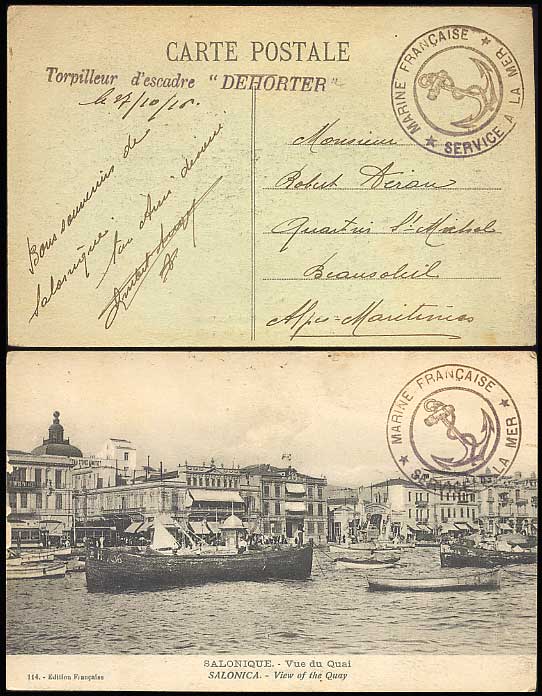 CARTE POSTALE
Torpilleur d'escadre "DEHORTER"
MARINE FRANÇAISE ★ SERVICE A LA MER ★
le 27/10/16.
Bons souvenirs de
Salonique.
ton Ami dévoué
Monsieur
Robert
Quartier St Michel
Beausoleil
Alpes-Maritimes
MARINE FRANÇAISE ★ SERVICE A LA MER ★
SALONIQUE. - Vue du Quai
114. - Edition Française
SALONICA. - View of the Quay